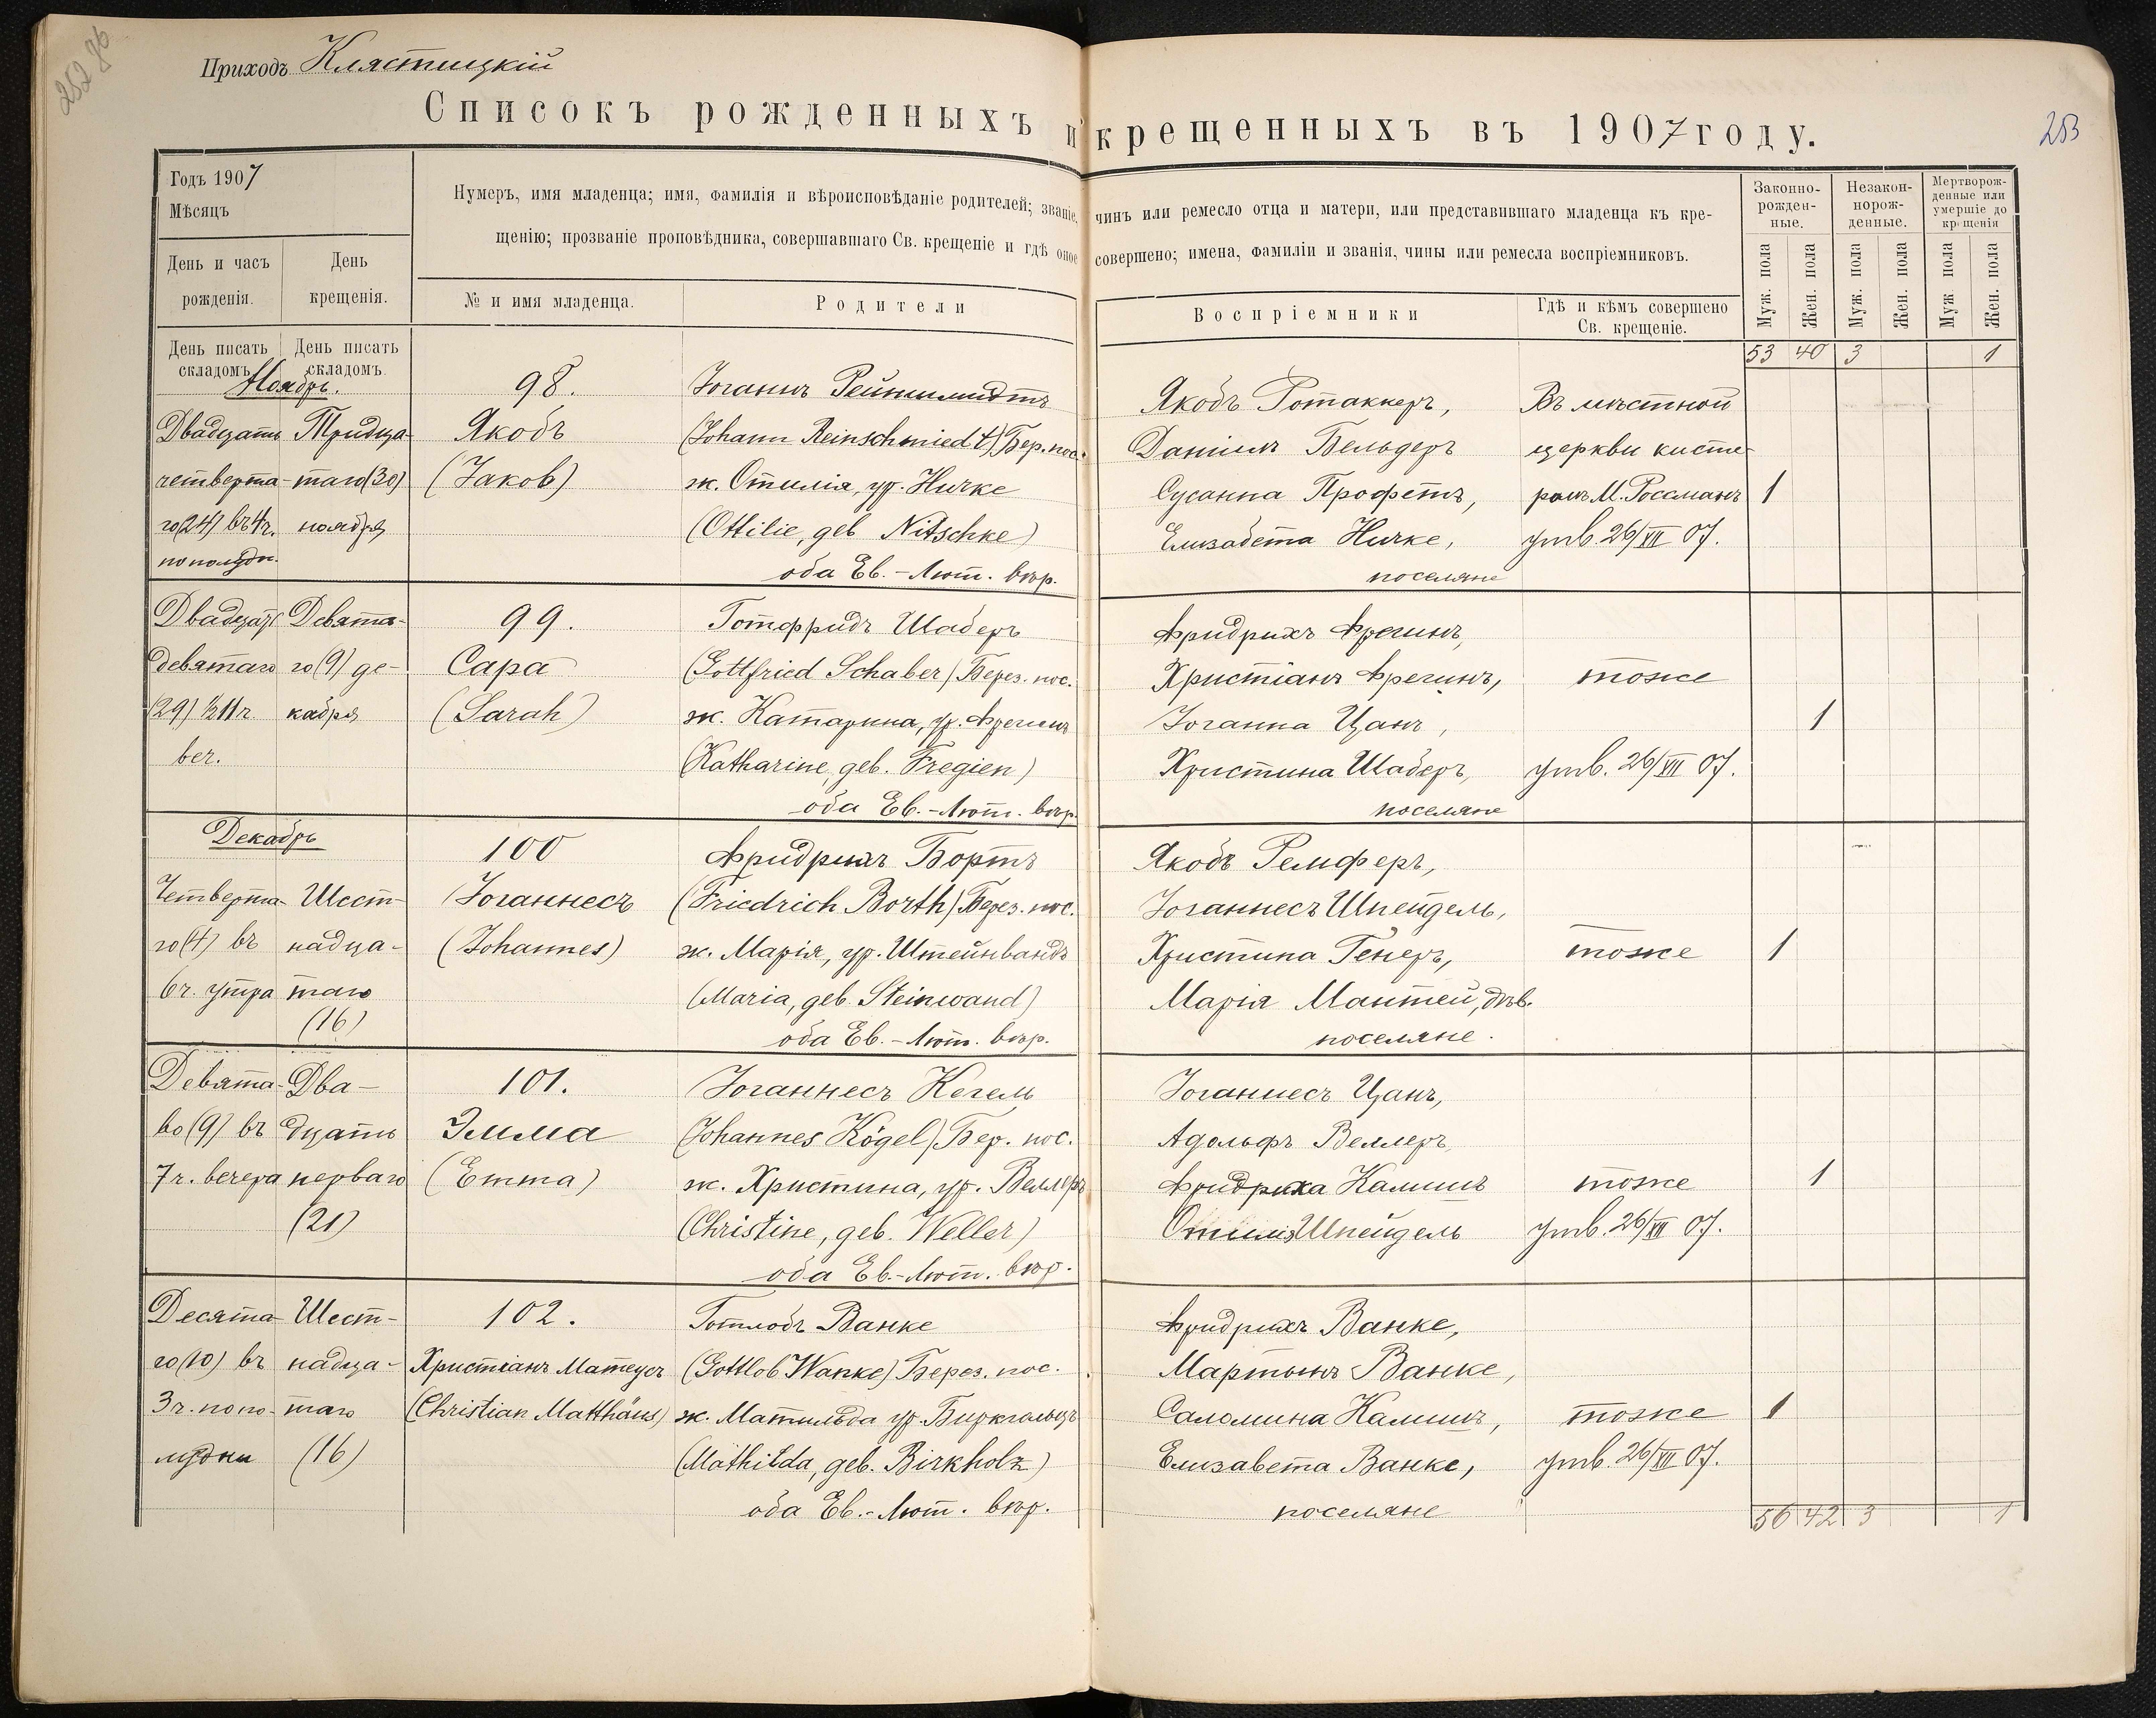 252 об
Приходъ Клястицкій
Списокъ рожденныхъ и крещенныхъ въ 1907 году.
253
Годъ 1907
Мѣсяцъ
День и часъ рожденія.
День крещенія.
Нумеръ, имя младенца; имя, фамилія и вѣроисповѣданіе родителей; званіе, чинъ или ремесло отца и матери, или представившаго младенца къ кре-
щенію; прозваніе проповѣдника, совершавшаго Св. крещеніе и гдѣ оное совершено; имена, фамиліи и званія, чины или ремесла воспріемниковъ.
№ и имя младенца.
Родители
Воспріемники
Гдѣ и кѣмъ совершено
Св. крещеніе.
Законно-
рожден-
ные.
Незакон-
норож-
денные.
Мертворож-
денные или
умершіе до
крещенія
Муж. пола
Жен. пола
Муж. пола
Жен. пола
Муж. пола
Жен. пола
День писать
складомъ
День писать
складомъ
53 40 3 1
Ноябрь.
Двадцать
четверта-
го (24) въ 4 ч.
пополудн.
Тридца-
таго (30)
ноября
98.
Якобъ
(Jakob)
Іоганнъ Рейншмидтъ
(Johann Reinschmiedt) Бер. пос.
ж. Отилія, ур. Ничке
(Ottilie, geb Nitschke)
оба Ев.-Лют. вѣр.
Якобъ Ротаккеръ,
Даніилъ Бельцеръ
Сусанна Профетъ,
Елизабета Ничке,
поселяне
Въ мѣстной
церкви кисте-
ромъ М. Россманъ
утв. 26/XII 07.
1
Двадцать
девятаго
(29) ½ 11 ч.
веч.
Девята-
го (9) де-
кабря
99.
Сара
(Sarah)
Готфридъ Шаберъ
(Gottfried Schaber) Берез. пос.
ж. Катарина, ур. Фрегинъ
(Katharine, geb. Fregien)
оба Ев.-Лют. вѣр.
Фридрихъ Фрегинъ,
Христіанъ Фрегинъ,
Іоганна Цанъ,
Христина Шаберъ,
поселяне
тоже
утв. 26/XII 07.
1
Декабрь
Четверта-
го (4) въ
6 ч. утра
Шест-
надца-
таго
(16)
100
Іоганнесъ
(Johannes)
Фридрихъ Бортъ
(Friedrich Borth) Берез. пос.
ж. Марія, ур. Штейнвандъ
(Maria, geb. Steinwand)
оба Ев.-Лют. вѣр.
Якобъ Ремферъ,
Іоганнесъ Шпейдель,
Христина Генеръ,
Марія Мантей, дѣв.
поселяне.
тоже
1
Девята-
во (9) въ
7 ч. вечера
Два-
дцать
перваго
(21)
101.
Эмма
(Emma)
Іоганнесъ Кегель
(Johannes Kögel) Бер. пос.
ж. Христина, ур. Веллеръ
(Christine, geb. Weller)
оба Ев.-Лют. вѣр.
Іоганнесъ Цанъ,
Адольфъ Веллеръ,
Фридриха Калишъ
Отилія Шпейдель
тоже
утв. 26/XII 07.
1
Десята-
го (10) въ
3 ч. попо-
лудни
Шест-
надца-
таго
(16)
102.
Христіанъ Матеусъ
(Christian Matthäus)
Готлобъ Ванке
(Gottlob Wanke) Берез. пос.
ж. Матильда ур. Биркгольцъ
(Mathilda, geb. Birkholz)
оба Ев.-Лют. вѣр.
Фридрихъ Ванке,
Мартынъ Ванке,
Саломина Калишъ,
Елизавета Ванке,
поселяне
тоже
утв. 26/XII 07.
1
56 42 3 1